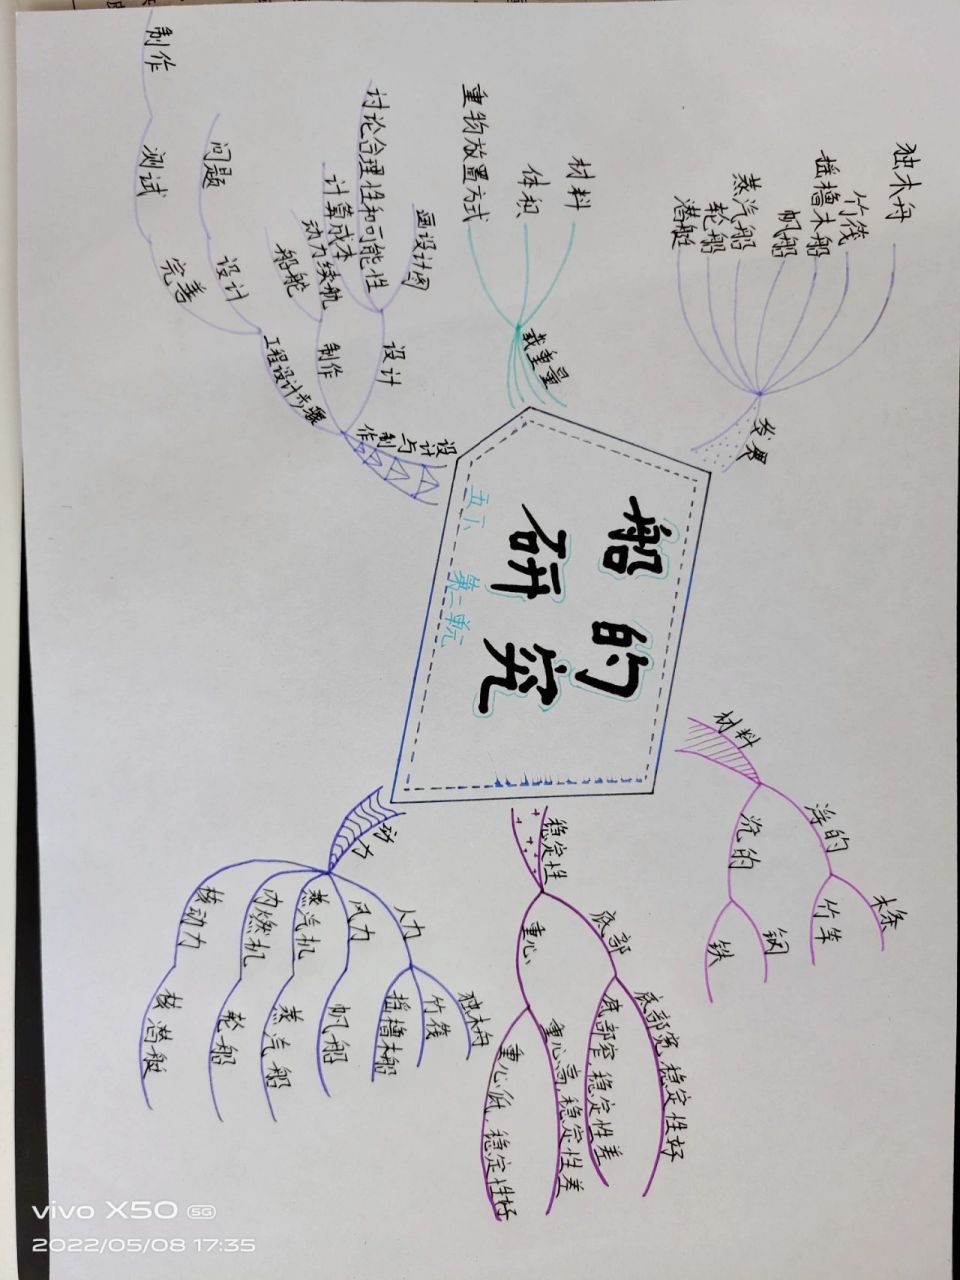 船的
研究
五下 第二单元
材料
浮的
木条
竹竿
沉的
钢
铁
稳定性
底部
底部宽,稳定性好
底部窄 稳定性差
重心
重心高,稳定性差
重心低,稳定性好
动力
人力
独木舟
竹筏
摇撸木船
风力
帆船
蒸汽机
蒸汽船
内燃机
轮船
核动力
核潜艇
独木舟
竹筏
摇撸木船
帆船
蒸汽船
轮船
潜艇
载重量
材料
体积
重物放置方式
设计与
制作
设计
画设计图
讨论合理性和可能性
计算成本
制作
动力续航
船舵
工程设计步骤
问题
设计
制作
测试
完善
vivo X50 5G
2022/05/08 17:35